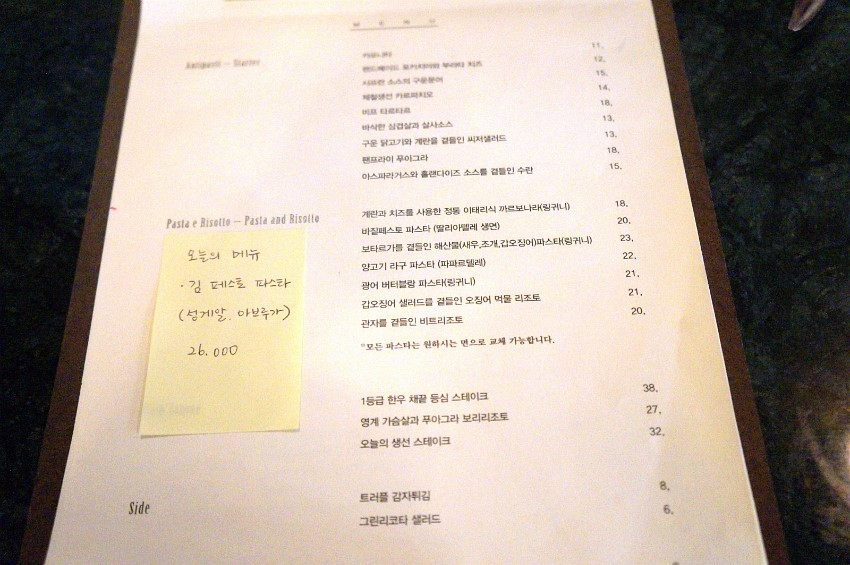 MENU
Antipasti – Starter
카포나타 11.
핸드메이드 포카치아와 부라타 치즈 12.
샤프란 소스의 구운문어 15.
제철생선 카르파치오 14.
비프 타르타르 18.
바삭한 삼겹살과 살사소스 13.
구운 닭고기와 계란을 곁들인 씨저샐러드 13.
팬프라이 푸아그라 18.
아스파라거스와 홀랜다이즈 소스를 곁들인 수란 15.
Pasta e Risotto – Pasta and Risotto
계란과 치즈를 사용한 정통 이태리식 까르보나라(링귀니) 18.
바질페스토 파스타 (딸리아뗄레 생면) 20.
보타르가를 곁들인 해산물(새우,조개,갑오징어)파스타(링귀니) 23.
양고기 라구 파스타 (파파르델레) 22.
광어 버터블랑 파스타(링귀니) 21.
갑오징어 샐러드를 곁들인 오징어 먹물 리조토 21.
관자를 곁들인 비트리조토 20.
*모든 파스타는 원하시는 면으로 교체 가능합니다.
오늘의 메뉴
· 김 페스토 파스타
(성게알, 아브루가)
26.000
1등급 한우 채끝 등심 스테이크 38.
영계 가슴살과 푸아그라 보리리조토 27.
오늘의 생선 스테이크 32.
Side
트러플 감자튀김 8.
그린리코타 샐러드 6.